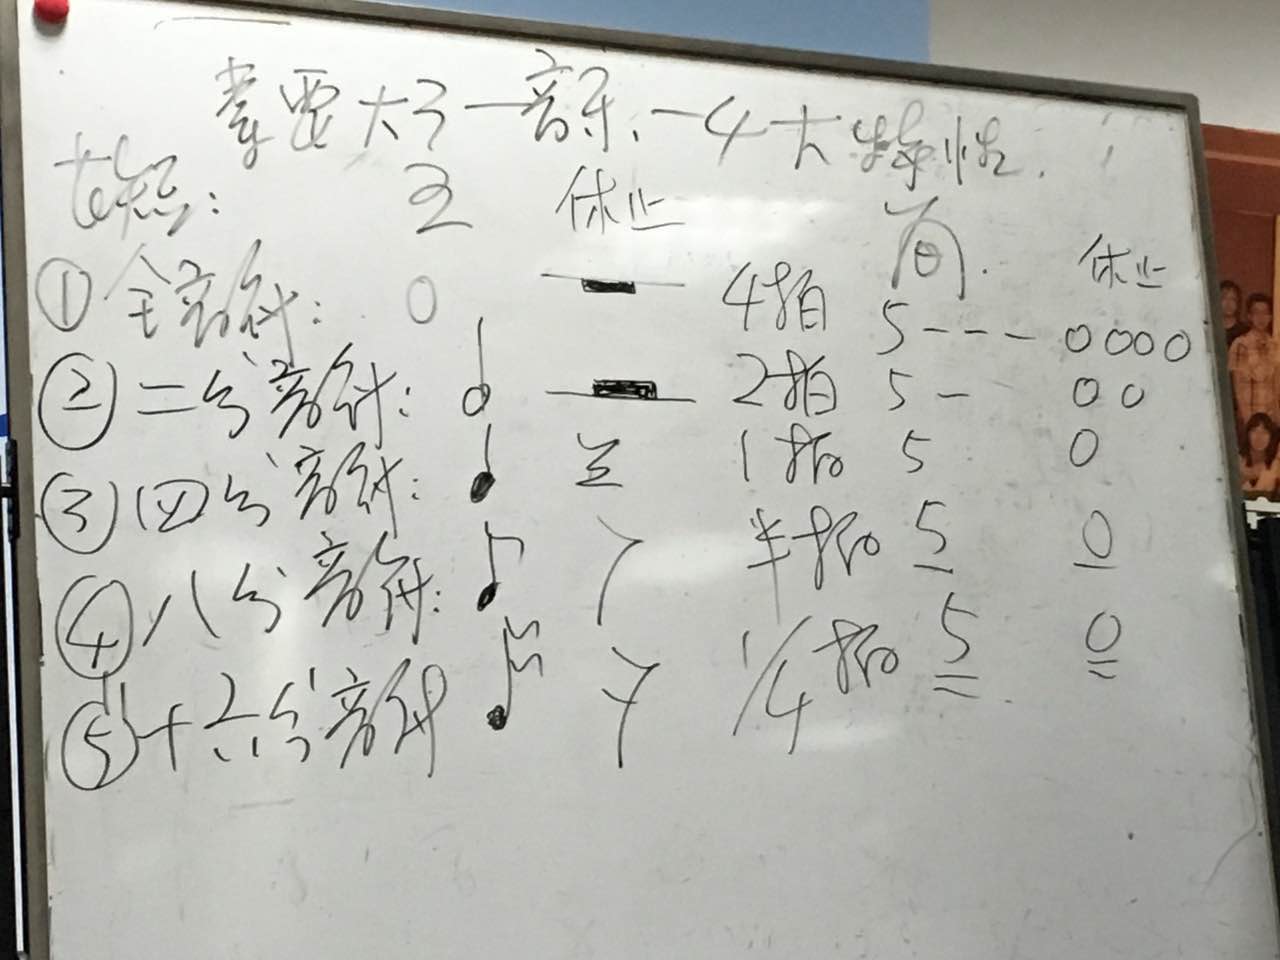 大子一音乐、一4大特性.
长短: 五 休止 简. 休止
① 全音符: 4拍 5--- 0000
② 二分音符: 2拍 5- 00
③ 四分音符: 1拍 5 0
④ 八分音符: 半拍 5 0
⑤ 十六分音符 1/4拍 5 0